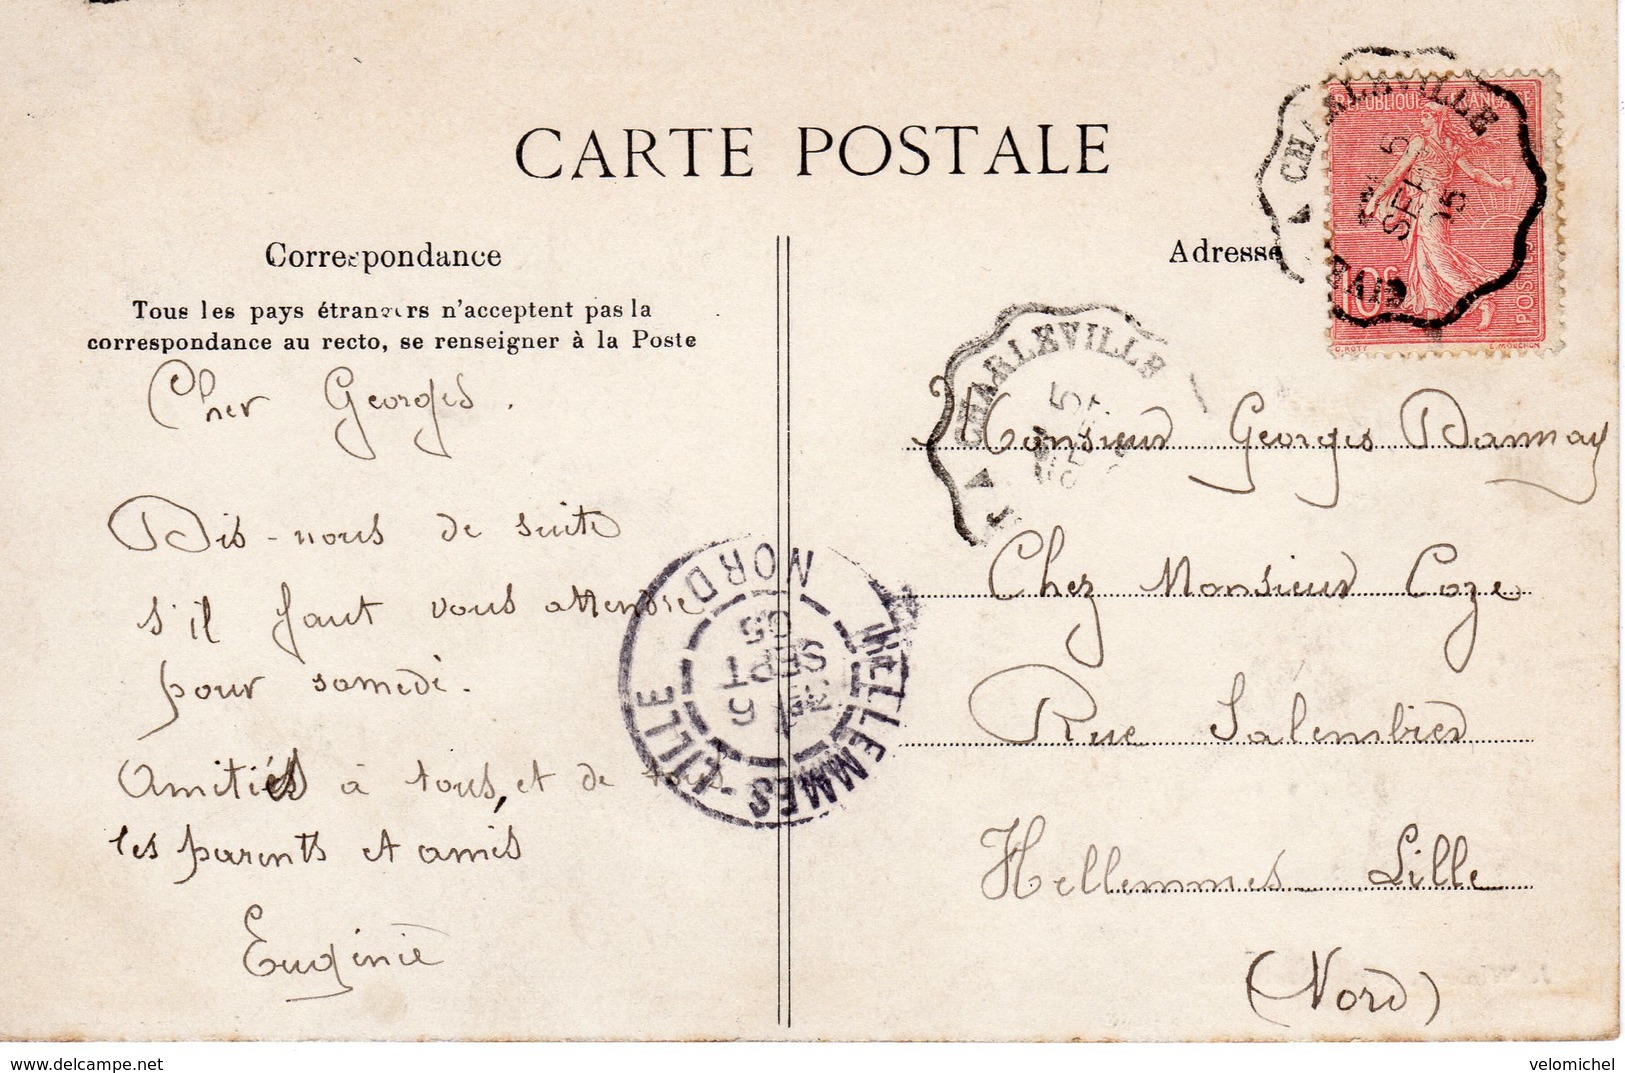 CARTE POSTALE
Correspondance
Tous les pays étrangers n'acceptent pas la
correspondance au recto, se renseigner à la Poste
Cher Georges.
Dis-nous de suite
s'il faut vous attendre
pour samedi.
Amitiés à tous, et de tous
les parents et amis
Euginie
Adresse
REPUBLIQUE FRANÇAISE
10c
POSTES
O. ROTY
E. MOUCHON
GIVET A CHARLEVILLE
5
SEPT
05
A CHARLEVILLE
5
SEPT
HELLEMMES-LILLE
NORD
6
SEPT
05
Monsieur Georges Dannay
Chez Monsieur Coze
Rue Salembier
Hellemmes Lille
(Nord)
delcampe.net
velomichel